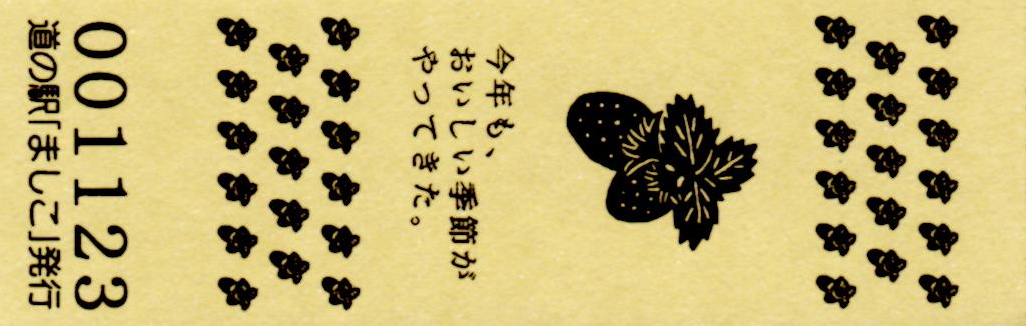 今年も、
おいしい季節が
やってきた。
001123
道の駅「ましこ」発行